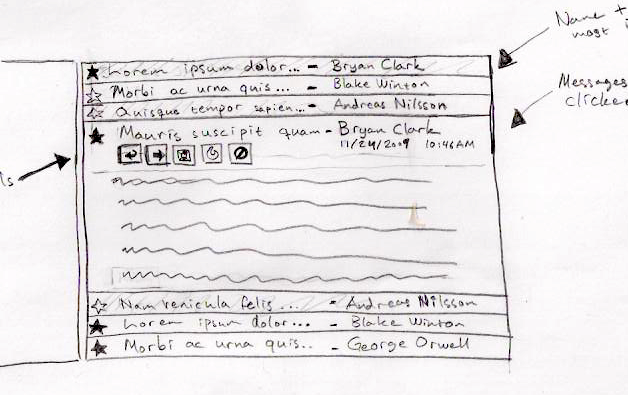 Name +
most i
Lorem ipsum dolor... - Bryan Clark
Morbi ac urna quis... - Blake Winton
Quisque tempor sapien... - Andreas Nilsson
Messages
clicked
Mauris suscipit quam - Bryan Clark
11/24/2009 10:46AM
ls
Nam venicula felis... - Andreas Nilsson
Lorem ipsum dolor... - Blake Winton
Morbi ac urna quis.. - George Orwell